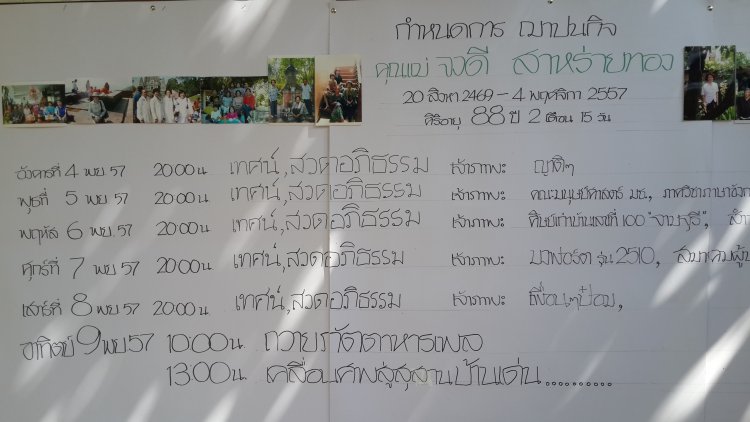 กำหนดการ ฌาปนกิจ
คุณแม่ จงดี สาหร่ายทอง
20 สิงหา 2469 - 4 พฤศจิกา 2557
ศิริอายุ 88 ปี 2 เดือน 15 วัน
อังคารที่ 4 พย 57 20 00 น. เทศน์, สวดอภิธรรม เจ้าภาพ: ญาติๆ
พุธที่ 5 พย 57 20 00 น. เทศน์, สวดอภิธรรม เจ้าภาพ: คณะมนุษย์ศาสตร์ มช., ภาควิชาภาษาอังก
พฤหัส 6 พย. 57 20 00 น. เทศน์, สวดอภิธรรม เจ้าภาพ: ศิษย์เก่าบ้านเลขที่ 100
ศุกร์ที่ 7 พย 57 20 00 น. เทศน์, สวดอภิธรรม เจ้าภาพ: รุ่น 2510, สมาคมผู้ป
เสาร์ที่ 8 พย 57 20 00 น. เทศน์, สวดอภิธรรม เจ้าภาพ: เพื่อนๆป้อม,
อาทิตย์ 9 พย 57 10 00 น. ถวายภัตตาหารเพล
13 00 น. เคลื่อนศพสู่สุสานบ้านเด่น...........